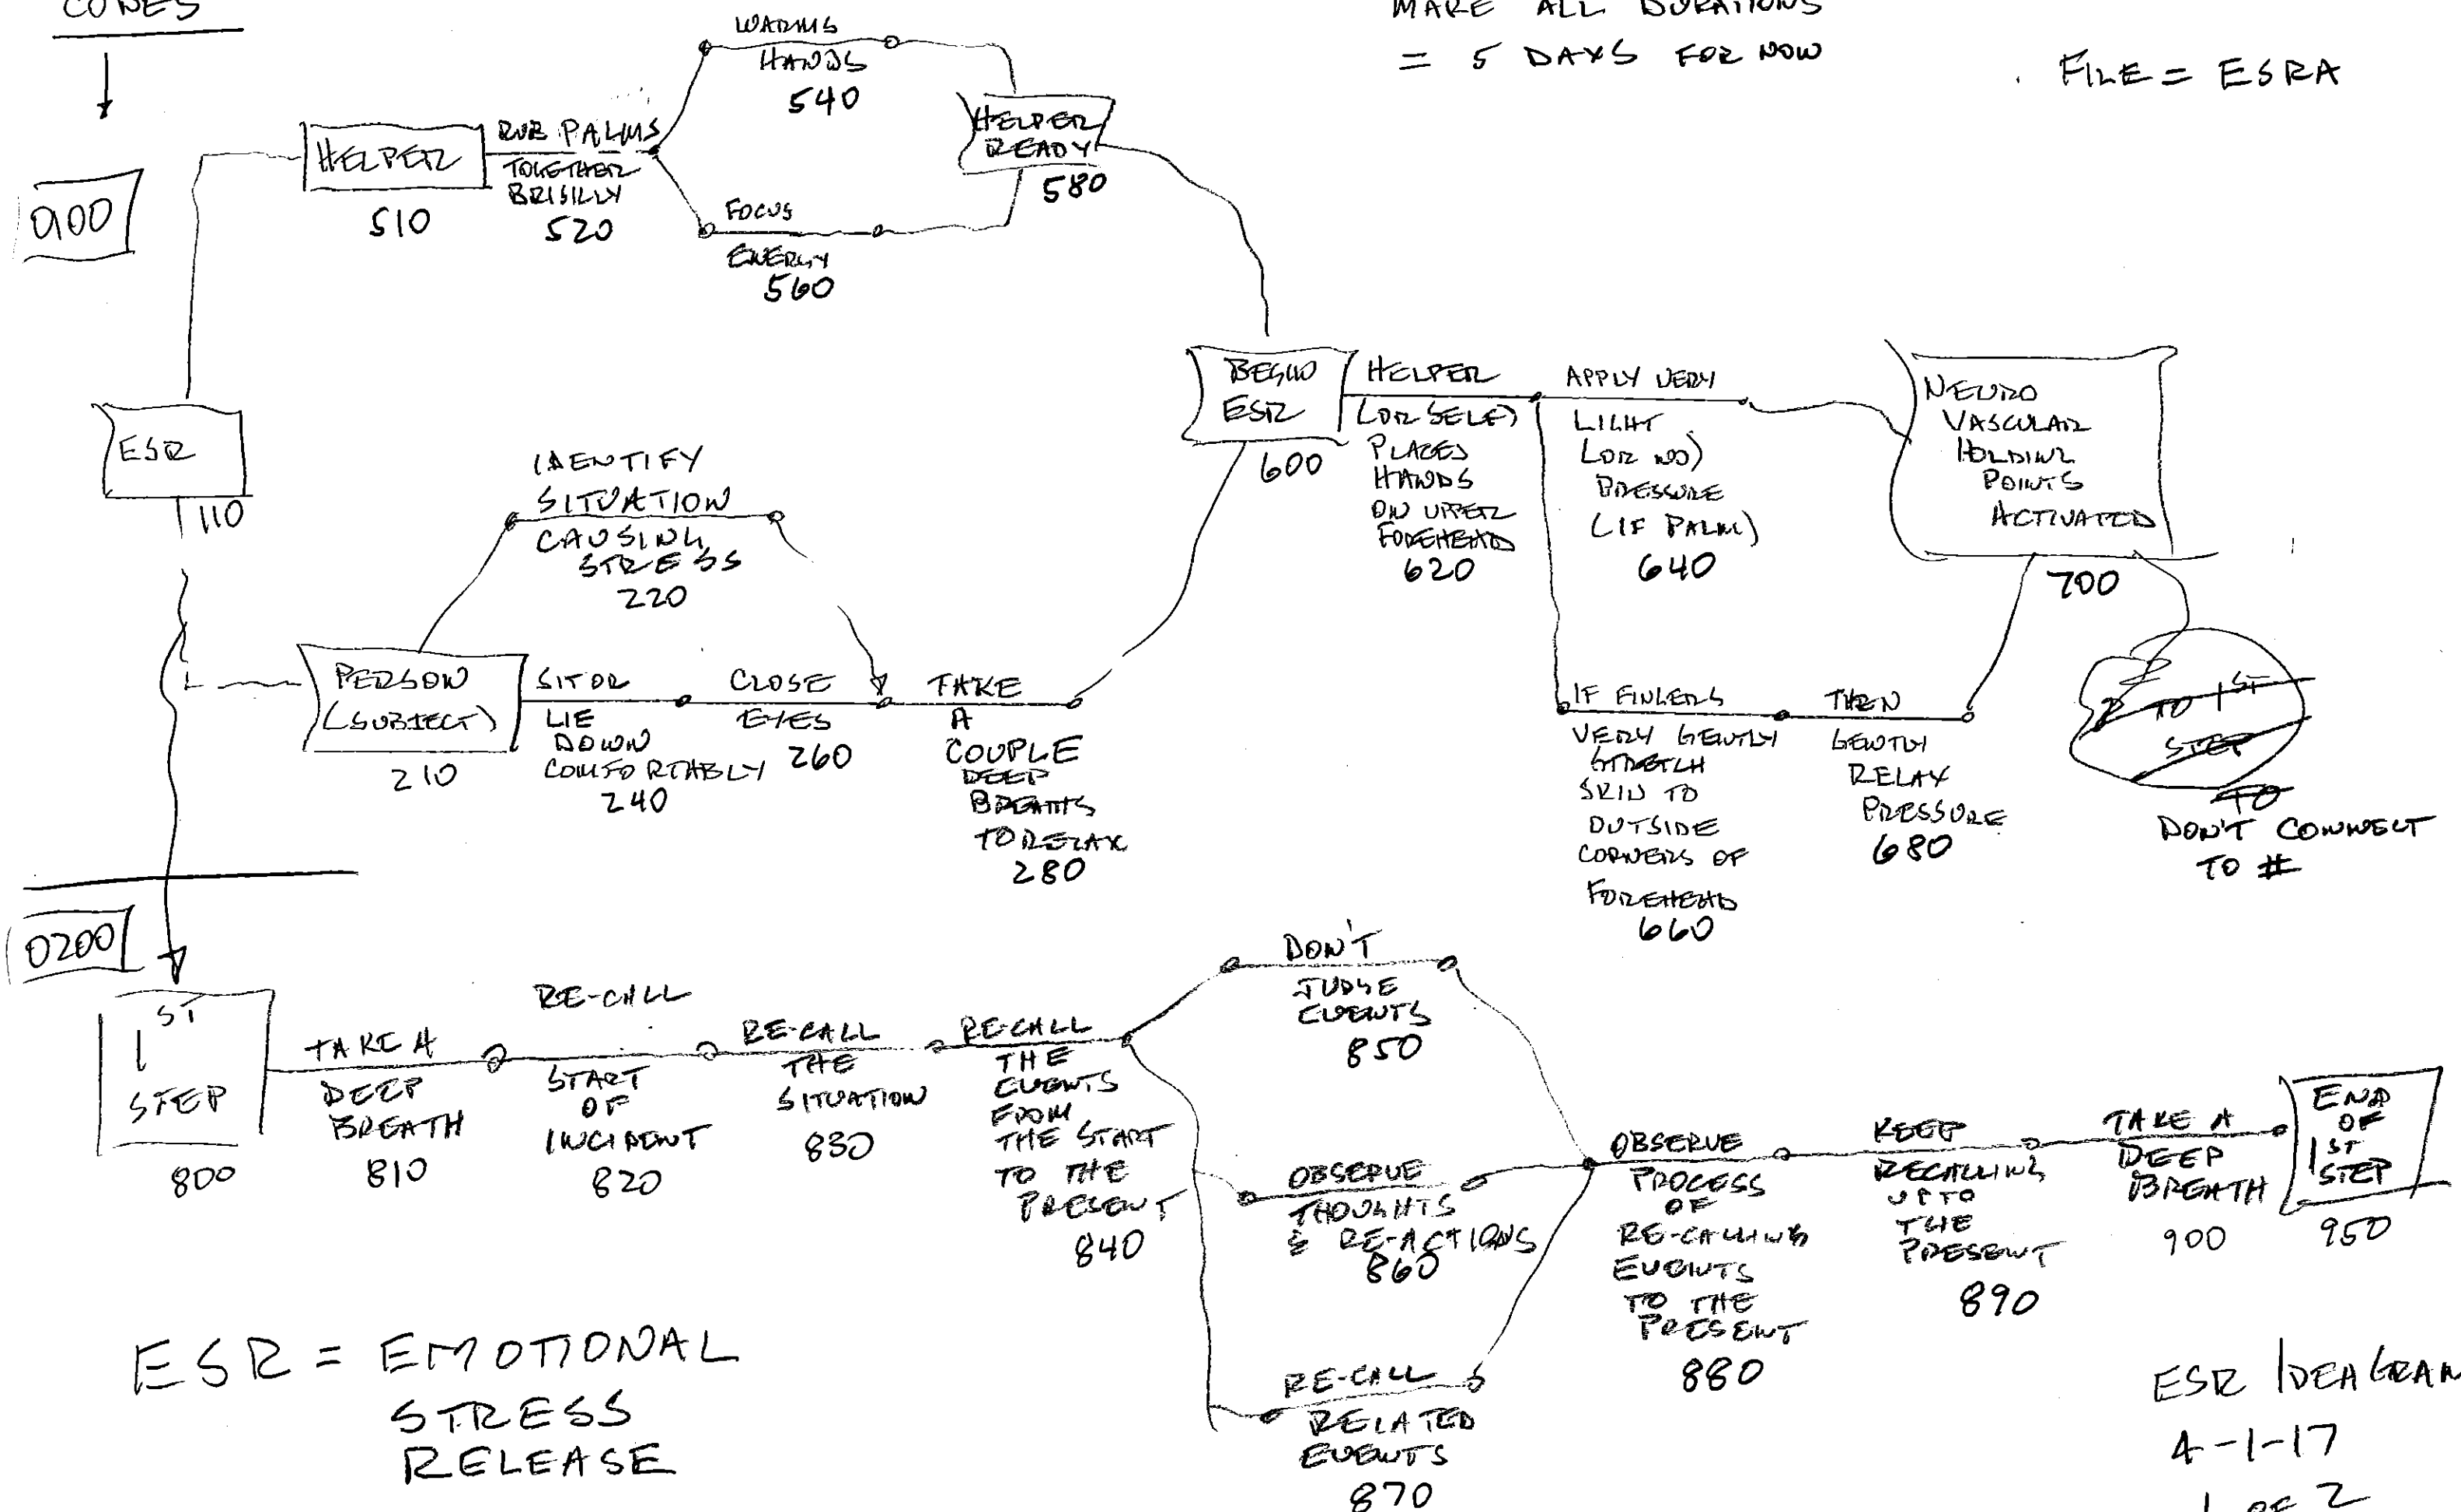 MAKE ALL DURATIONS
= 5 DAYS FOR NOW
FILE = ESRA
WARMS
HANDS
540
HELPER
510
RUB PALMS
TOGETHER
520
FOCUS
ENERGY
560
HELPER
READY
580
ESR
110
IDENTIFY
SITUATION
CAUSING
STRESS
220
PERSON
(SUBJECT)
210
SIT OR
LIE
DOWN
COMFORTABLY
240
CLOSE
EYES
260
TAKE
A
COUPLE
DEEP
BREATHS
TO RELAX
280
BEGIN
ESR
600
HELPER
(OR SELF)
PLACES
HANDS
ON UPPER
FOREHEAD
620
APPLY VERY
LIGHT
(OR NO)
PRESSURE
(IF PALM)
640
NEURO
VASCULAR
HOLDING
POINTS
ACTIVATED
700
IF FINGERS
VERY GENTLY
STRETCH
SKIN TO
OUTSIDE
CORNERS OF
FOREHEAD
660
THEN
GENTLY
RELAX
PRESSURE
680
TO 1ST
STEP
TO
DON'T CONNECT
TO #
0200
1ST
STEP
800
TAKE A
DEEP
BREATH
810
RE-CALL
START
OF
INCIDENT
820
RE-CALL
THE
SITUATION
830
RE-CALL
THE
EVENTS
FROM
THE START
TO THE
PRESENT
840
DON'T
JUDGE
EVENTS
850
OBSERVE
THOUGHTS
& RE-ACTIONS
860
RE-CALL
RELATED
EVENTS
870
OBSERVE
PROCESS
OF
RE-CALLING
EVENTS
TO THE
PRESENT
880
KEEP
RECALLING
UP TO
THE
PRESENT
890
TAKE A
DEEP
BREATH
900
END
OF
1ST
STEP
950
ESR = EMOTIONAL
STRESS
RELEASE
ESR IDEAGRAM
4-1-17
1 OF 2